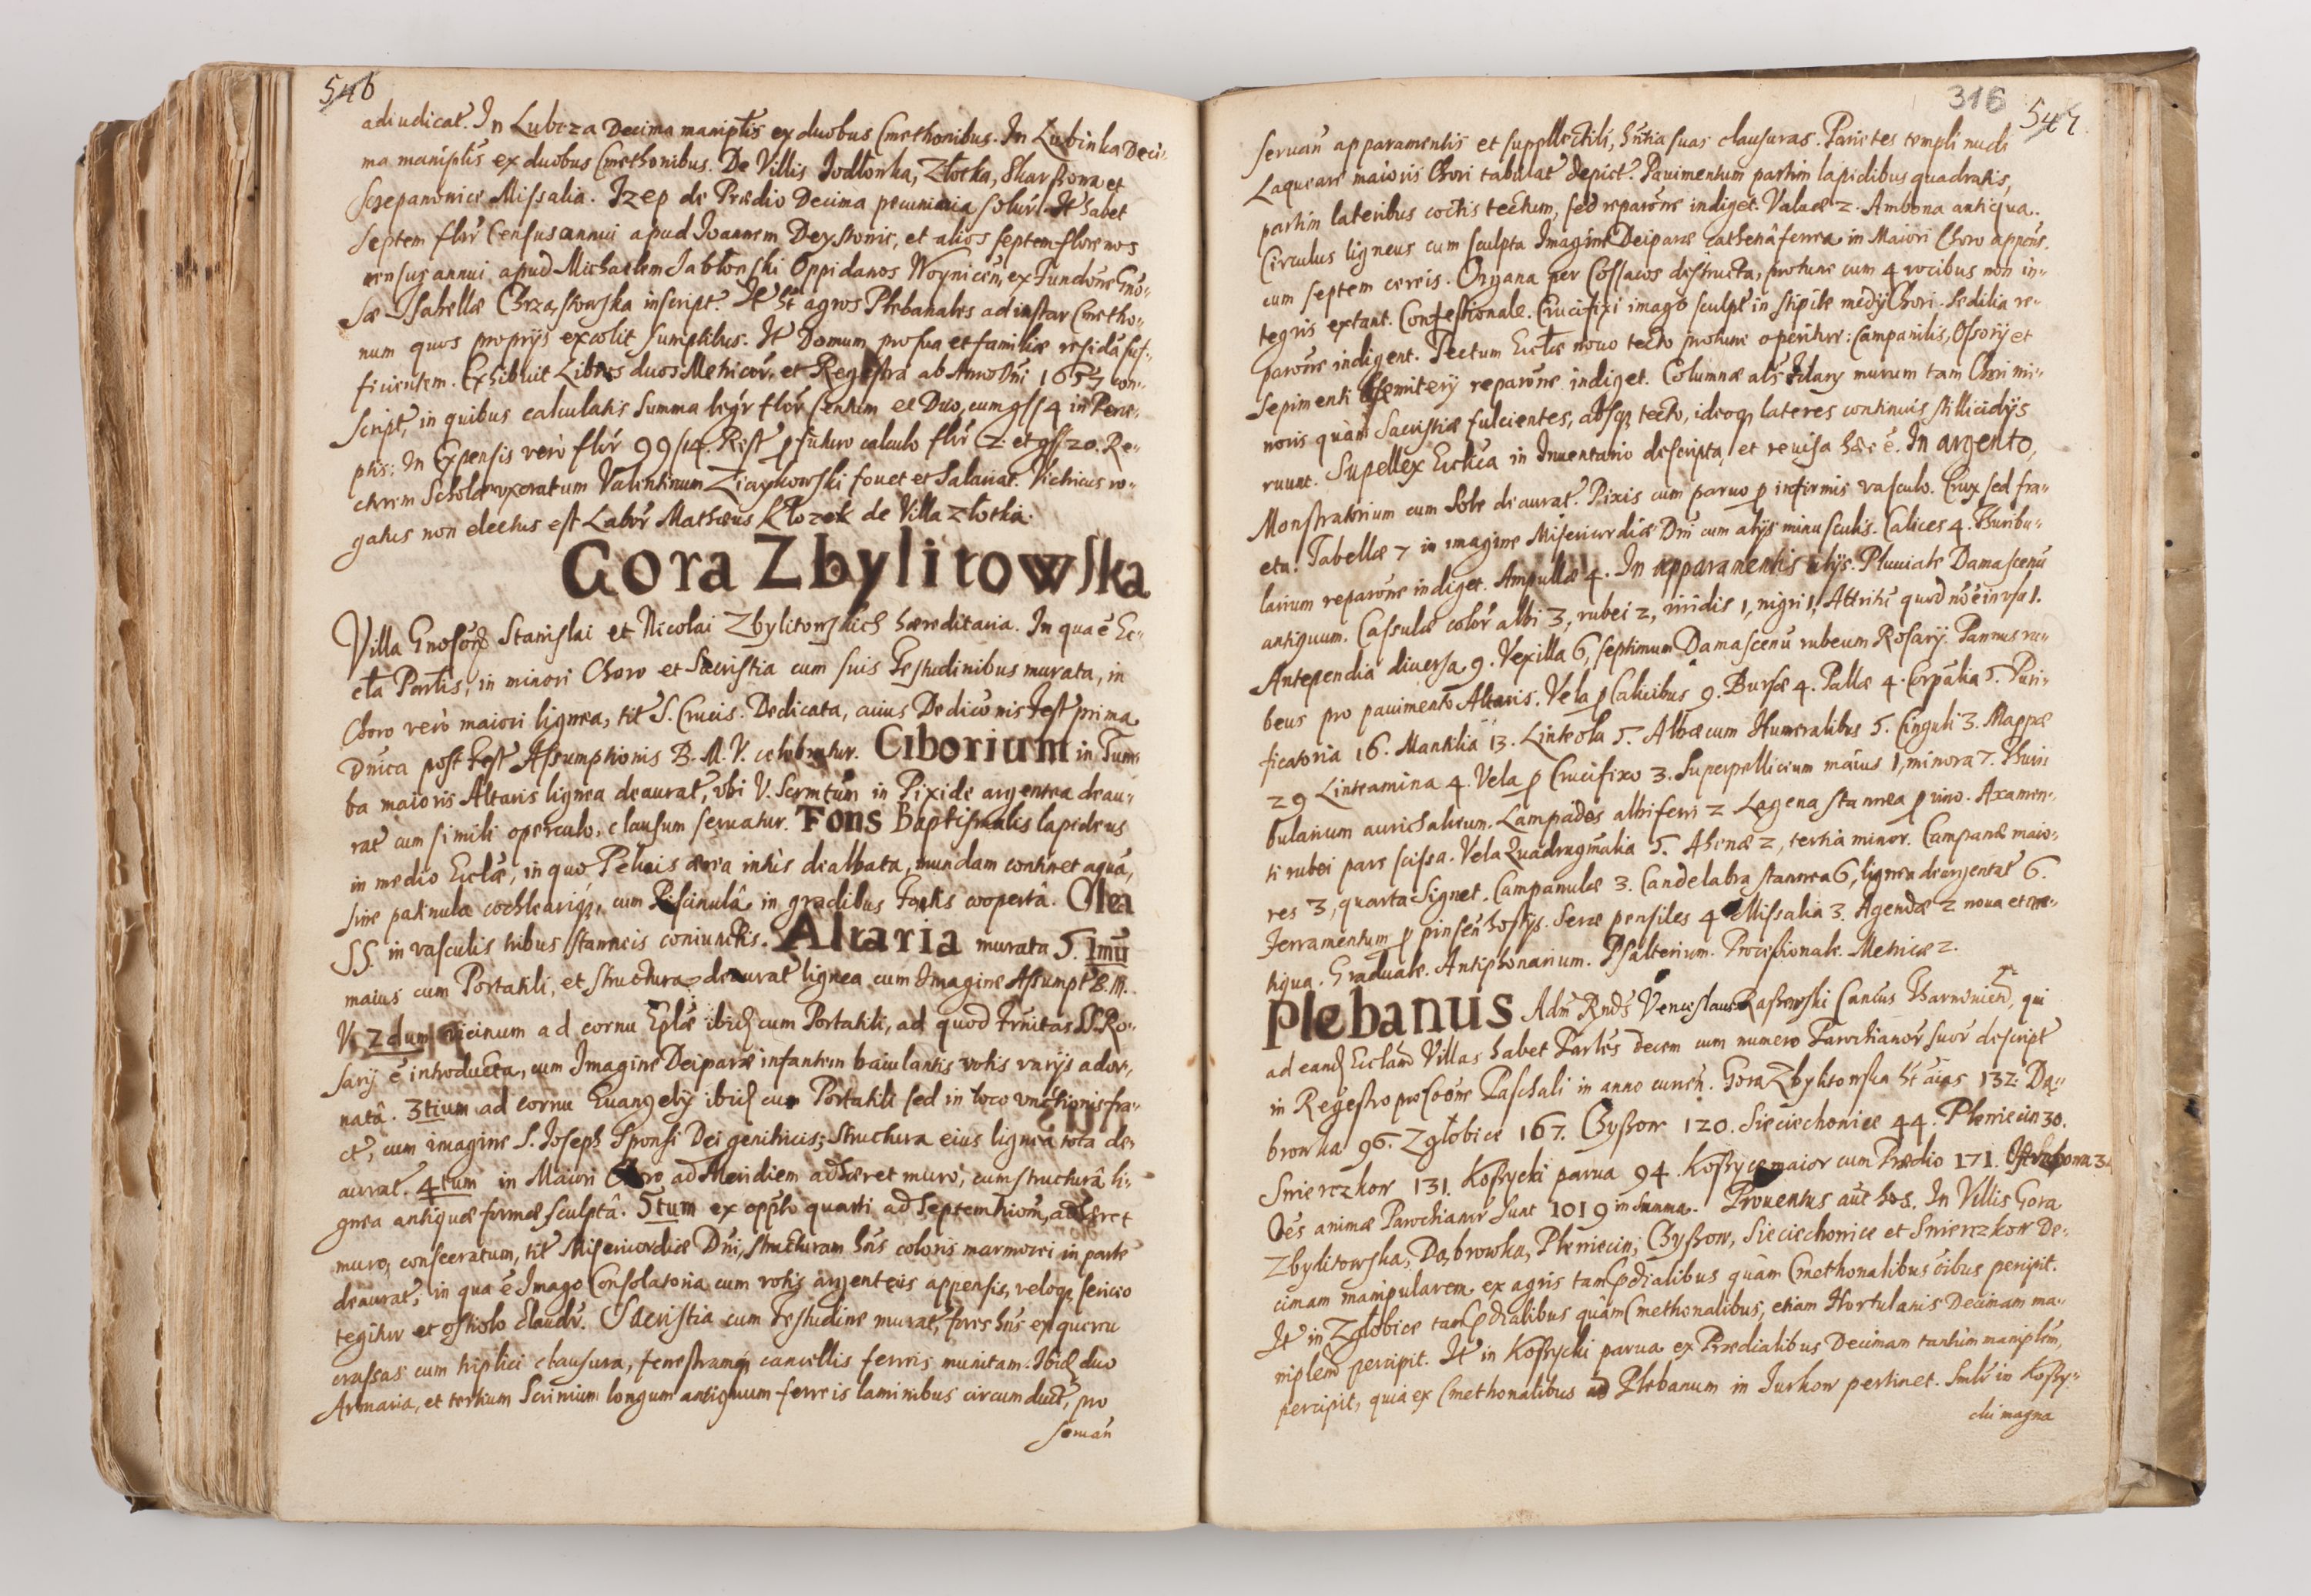 546
adiudicat. In Lubcza Decima maniplis ex duobus Cmethonibus. In Lubinka Deci-
ma maniplis ex duobus Cmethonibus. De Villis Jodłowka, Złotka, Skarszowa et
Sczepanowice Missalia. Izep de Prædio Decima pecuniaria solur. It habet
septem flor Census annui apud Joannem Deystowic, et alios septem florenos
census annui apud Michaelem Jabłonski Oppidanos Woynicen, ex Fundõne Gno-
sæ Isabellæ Chrząstowska inscript. It ht agros Plebanales ad instar Cmetho-
num quos proprijs excolit sumptibus. It Domum pro sua et familiæ residã suf-
ficientem. Exhibuit Libros duos Metricor, et Regestra ab Anno Dni 1657 con-
script, in quibus calculatis summa legr flor sentum et Duo, cum gss 4 in Perce-
ptis: In Expensis verò flor 99/14. Rest p futuro calculo flor 2. et gss 20. Re-
ctorem Scholæ uxoratum Valentinum Ziaykowski fouet et Salariat. Vitricus ro-
gatus non electus est Labor Mathæus Kłozek de Villa Złotka.
Gora Zbylitowska
Villa Gnosorũ Stanislai et Nicolai Zbylitowskich hæreditaria. In qua ẽ Ec-
cła Portis, in minori Choro et Sacristia cum suis Testudinibus murata, in
Choro verò maiori lignea, tit S. Crucis. Dedicata, cuius Dedicõnis Fest prima
Dnica post Fest Assumptionis B. M. V. celebratur. Ciborium in Tum-
ba maioris Altaris lignea deaurat, vbi V. Scrmtum in Pixide argentea deau-
rat cum simili operculo, clausum seruatur. Fons Baptismalis lapideus
in medio Ecclæ, in quo Peluis ærea intùs dealbata, mundam continet aquã,
sine patinula cochleariq, cum Piscinulâ in gradibus Fontis coopertâ. Olea
SS. in vasculis tribus stanneis coniunctis. Altaria murata 5. 1mũ
maius cum Portatili, et structura deaurat lignea cum Imagine Assumpt B. M.
V. 2dum vicinum ad cornu Eplæ ibid cum Portatili, ad quod Frnitas SS. Ro-
sarij ẽ introducta, cum Imagine Deiparæ infantem baiulantis votis varijs ador-
natâ. 3tium ad cornu Euangelij ibid cum Portatili sed in loco vnctionis fra-
ct, cum imagine S. Joseph Sponsi Dei genitricis; structura eius lignea tota de-
aurat. 4tum in Maiori Choro ad Meridiem adhæret muro, cum structurâ li-
gnea antiquæ formæ sculptâ. 5tum ex opplo quarti ad Septemtriom, adhæret
muro, consecratum, tit Misericordiæ Dni, structuram hns coloris marmorei in parte
deaurat, in qua ẽ Imago Consolatoria cum votis argenteis appensis, veloq sericeo
tegitur et ostiolo claudr. Sacristia cum Testudine murat, fores hns ex quercu
crassas cum triplici clausura, fenestramq cancellis ferreis munitam. Ibid duo
Armaria, et tertium Scrinium longum antiquum ferreis laminibus circumduct, pro
seruan
316
547
seruan apparamentis et suppllectili, hntia suas clausuras. Parietes templi nudi
Laqueare maioris Chori tabulat depict. Pauimentum partim lapidibus quadratis,
partim lateribus coctis tectum, sed reparõne indiget. Valuæ 2. Ambona antiqua.
Circulus ligneus cum sculpta Imagine Deiparæ cathenâ ferrea in Maiori Choro appens.
cum septem cereis. Organa per Cossacos destructa, protunc cum 4 vocibus non in-
tegris extant. Confessionale. Crucifixi imago sculpt in stipite medij Chori. Sedilia re-
parõne indigent. Tectum Ecclæ nouo tecto protunc operitur: Campanilis, Ossorij et
Sepimenti Cæmiterij reparõne indiget. Columnæ als Filary murum tam Chori mi-
noris quàm Sacristiæ fulcientes, absq tecto, ideoq lateres continuis stillicidijs
ruunt. Supellex Ecclica in Inuentario descripta, et reuisa hæc ẽ. In argento,
Monstratorium cum Sole deaurat. Pixis cum paruo p infirmis vasculo. Crux sed fra-
cta. Tabellæ 7 in imagine Misericordiæ Dni cum alijs minusculis. Calices 4. Thuribu-
larium reparõne indiget. Ampullæ 4. In apparamentis alijs. Pluuiale Damascenũ
antiquum. Casulæ color albi 3, rubei 2, viridis 1, nigri 1, Attriti quod nõ ẽ in vsu 1.
Antependia diuersa 9. Vexilla 6, septimum Damascenũ rubeum Rosarij. Pannus ru-
beus pro pauimento Altaris. Vela p Calicibus 9. Bursæ 4. Pallæ 4. Corpalia 5. Puri-
ficatoria 16. Mantilia 13. Linteola 5. Albæ cum Humeralibus 5. Cinguli 3. Mappæ
29 Linteamina 4. Vela p Crucifixo 3. Superpellicium maius 1, minora 7. Thuri
bularium aurichalceum. Lampades albi ferri 2 Legena stannea p vino. Axamen-
ti rubei pars scissa. Vela Quadragmalia 5. Ahenæ 2, tertia minor. Campanæ maio-
res 3, quarta Signet. Campanulæ 3. Candelabra stannea 6, lignea deargentat 6.
Ferramentum p pinsen hostijs. Seræ pensiles 4. Missalia 3. Agendæ 2 noua et an-
tiqua. Graduale. Antiphonarium. Psalterium. Processionale. Metricæ 2.
Plebanus Adm Rnds Venceslaus Raszowski Cancus Tharnouien, qui
ad eand Ecclam Villas habet Partes decem cum numero Parochianor suor descript
in Regestro pro Cõone Paschali in anno curren. Gora Zbylitowska ht aias 132. Dą-
browka 96. Zgłobice 167. Byszow 120. Sieciechowice 44. Plewiecin 30.
Swierczkow 131. Koszycki parua 94. Koszyce maior cum Prædio 171.
Oes animæ Parochianor sunt 1019 in summa. Prouentus aut hos. In Villis Gora
Zbylitowska, Dąbrowka, Plewiecin, Byszow, Sieciechowice et Swierczkow De-
cimam manipularem ex agris tam Pdialibus quàm Cmethonalibus oibus percipit.
It in Zgłobice tam Pdialibus quàm Cmethonalibus, etiam Hortulanis Decimam ma-
niplem percipit. It in Koszycki parua ex Prædialibus Decimam tantùm maniplem,
percipit, quia ex Cmethonalibus ad Plebanum in Jurkow pertinet. Smlr in Koszy-
cki magna